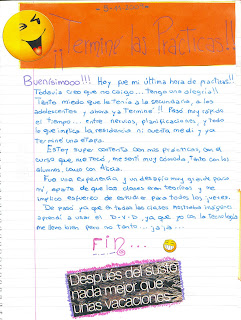 ¡¡Termine las Practicas!!
Buenísimooo!!! Hoy fue mi última hora de practicas!!
Todavía creo que no caigo... Tengo una alegría!!
Tanto miedo que le tenía a la secundaria, a los
adolescentes y ahora ya Terminé!! Pasó muy rápido
el tiempo... entre nervios, planificaciones, y todo
lo que implica la residencia ni cuenta me di y ya
terminé una etapa.
Estoy super contenta con mis prácticas, con el
curso que me tocó, me sentí muy cómoda tanto con los
alumnos, como con Alicia.
Fue una experiencia y un desafío muy grande para
mí, aparte de que las clases eran teóricas y me
implicó esfuerzo de estudiar para todos los jueves.
De paso ya que en todas las clases mostraba imágenes
aprendí a usar el D-V-D, ya que yo con la tecnología
me llevo bien pero no tanto... ja ja...
FIN...
Después del susto
nada mejor que
unas vacaciones